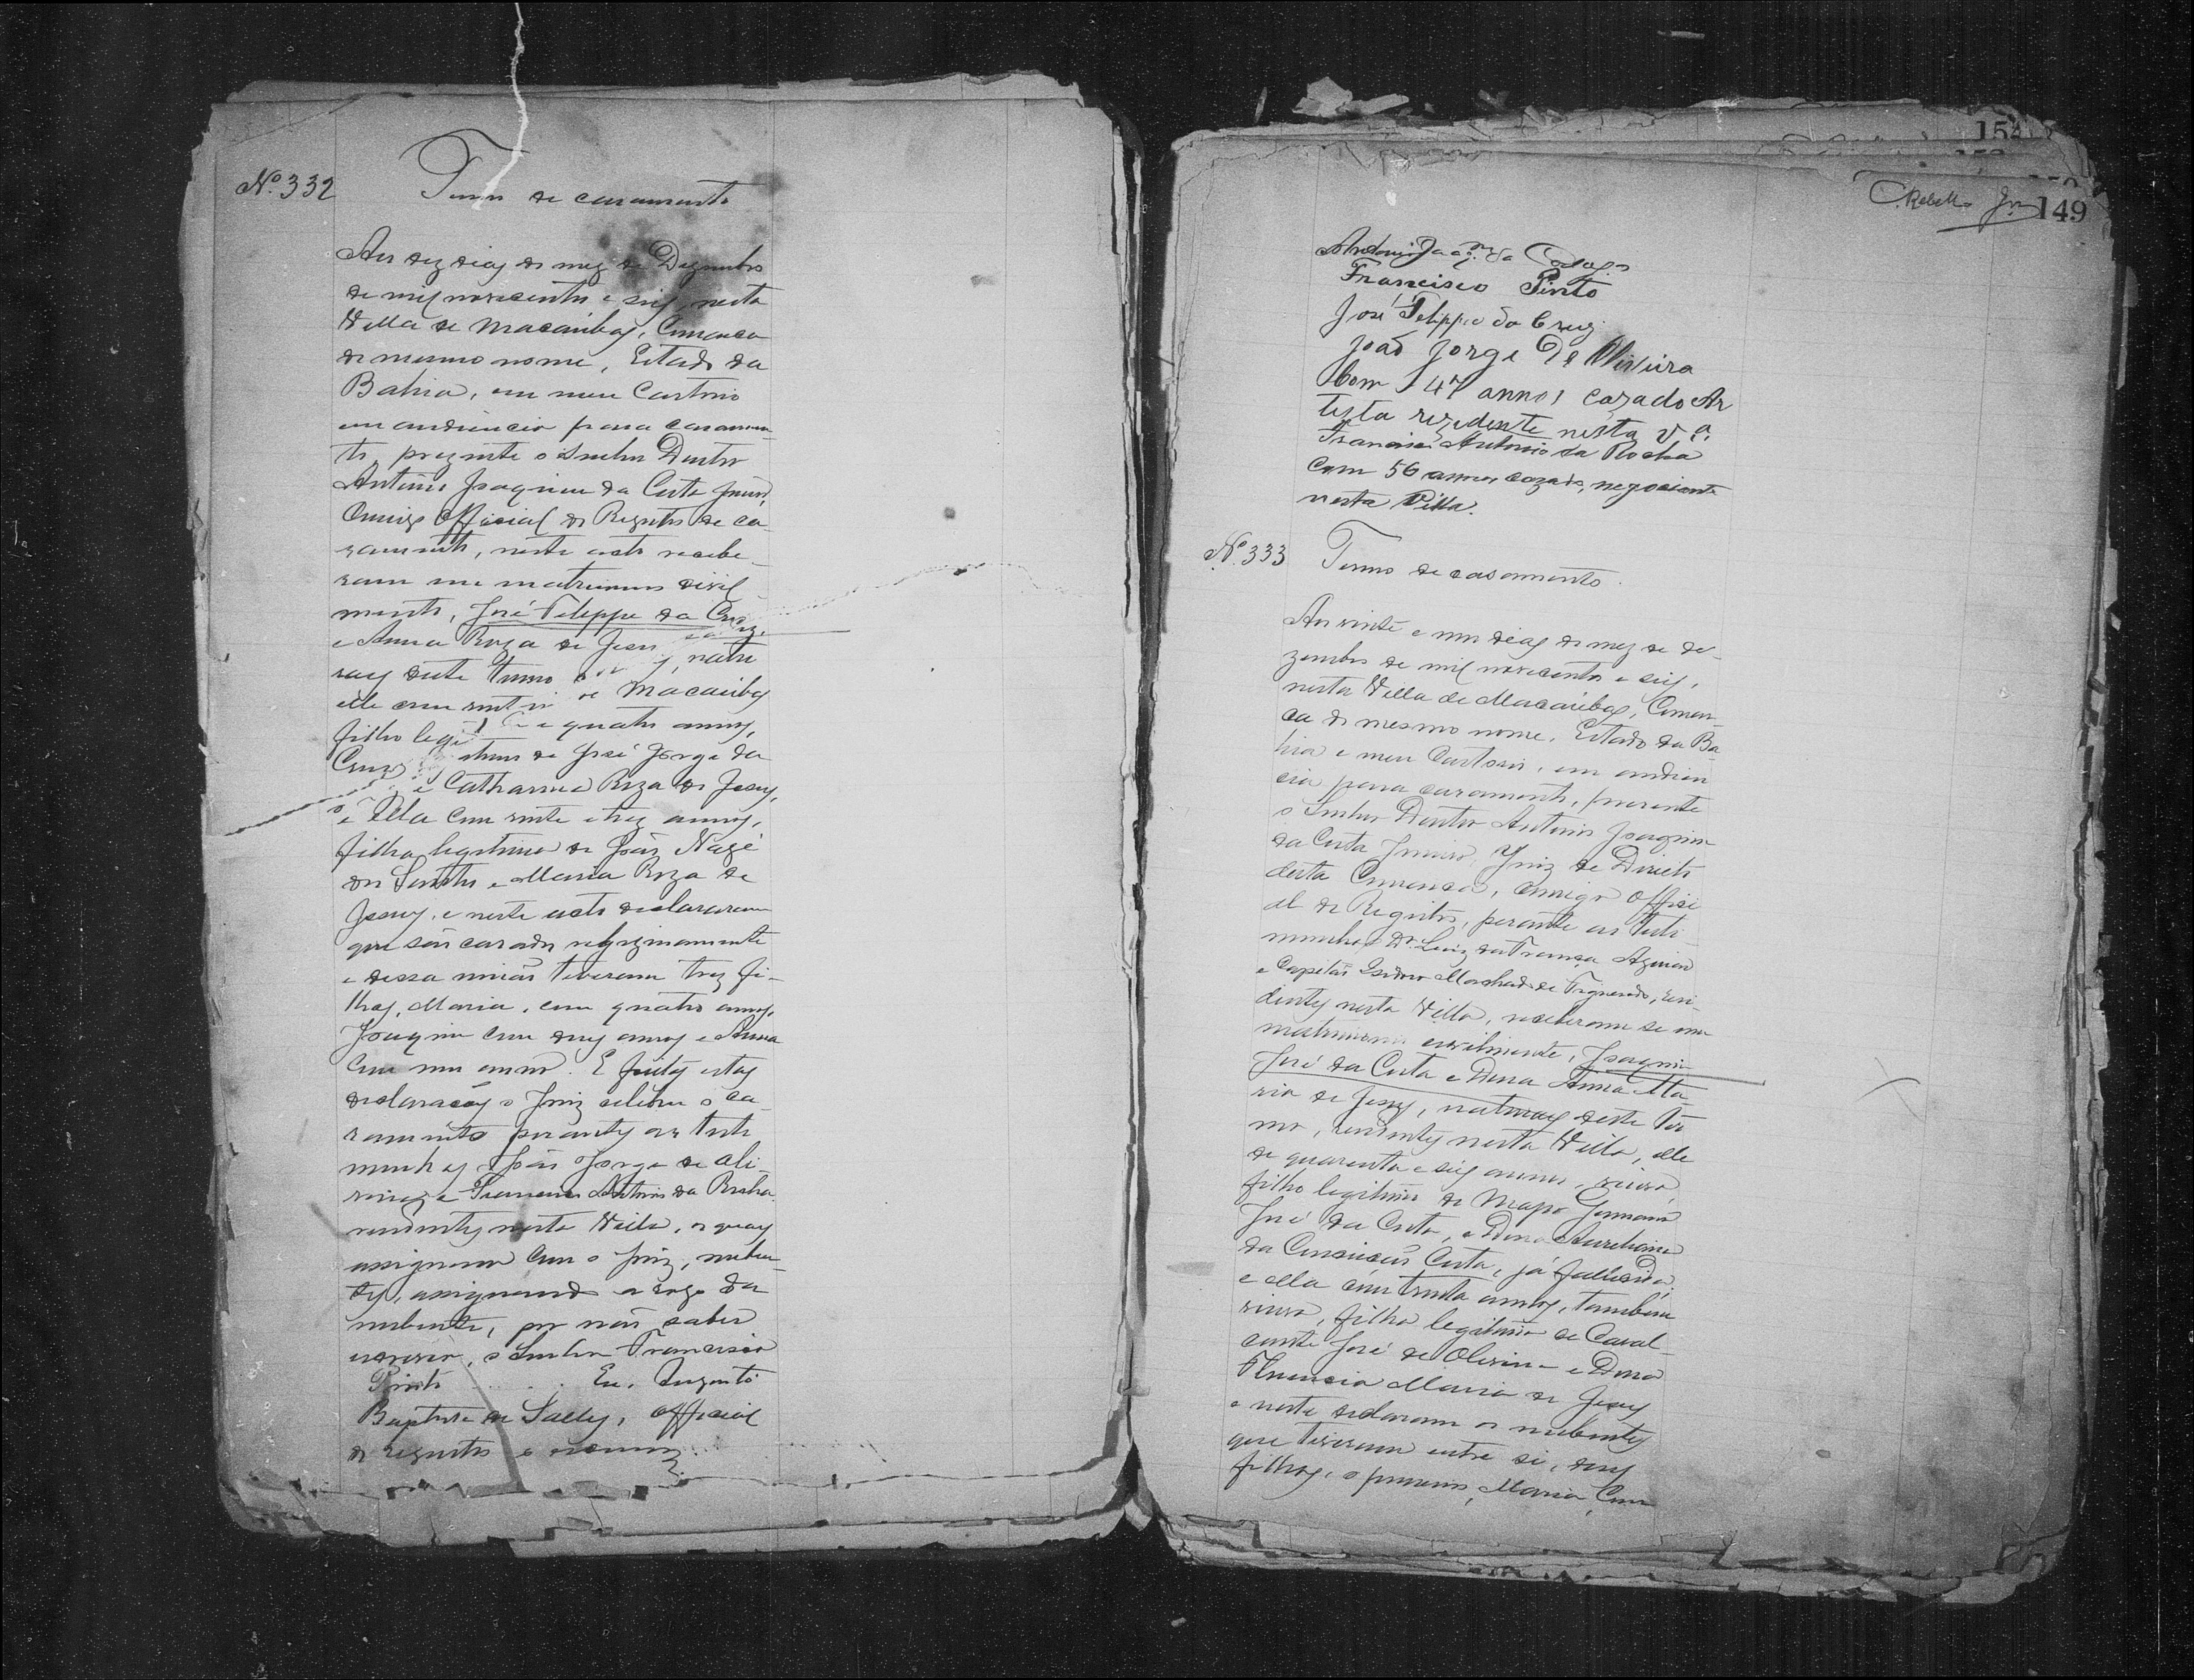 Nº 332
Termo de casamento
Aos dez dias do mez de Dezembro
de mil novecentos e seis, nesta
Villa de Macaúbas, Comarca
do mesmo nome, Estado da
Bahia, em meu Cartorio
em audiencia para casamen-
to, prezente o Senhor Doutor
Antonio Joaquim da Costa Junior,
Comigo Official do Registro de ca-
zamento, neste acto recebe-
ram em matrimonio civil-
mente, José Felippe da Cruz,
e Anna Roza de Jesus, natu
raes deste termo de Macaúbas
elle com vinte e quatro annos,
filho legitimo de José Jorge da
Cruz e Catharina Roza de Jesus,
e Ella com vinte e trez annos,
filha legitima de João Nazé
dos Santos e Maria Roza de
Jesus, e neste acto declararam
que são casados religiozamente
e dessa união tiveram trez fi-
lhos, Maria, com quatro annos,
Joaquim com dous annos e Anna
com um anno. E feitas estas
declarações o Juiz celebrou o ca-
samento perante as teste
munhas João Jorge de Oli-
veira e Francisco Antonio da Rocha
residentes nesta Villa, os quaes
assignaram com o Juiz, nuben-
tes, assignando a rogo da
nubente, por não saber
escrever, o Senhor Francisco
Pinto Eu, Augusto
Baptista de Salles, Official
do registro o escrevy.
154
Rebello Jor 149
Antonio Joaqm da Costa Jor
Francisco Pinto
José Felippe da Cruz
João Jorge De Oliveira
Com 47 annos cazado Ar
tista rezidente nesta Vª
Francisco Antonio da Rocha
Com 56 annos cazado, negociante
nesta Villa.
Nº 333
Termo de casamento.
Aos vinte e um dias do mez de de-
zembro de mil novecentos e seis,
nesta Villa de Macaúbas, Comar-
ca do mesmo nome, Estado da Ba
hia e meu Cartorio, em audien
cia para casamento, prezente
o Senhor Doutor Antonio Joaquim
da Costa Junior, Juiz de Direito
desta Comarca, comigo Offici
al do Registro, perante as teste-
munhas Dr. Luiz da França
e Capitão Isidoro Machado de Figueredo, resi-
dentes nesta Villa, receberam se em
matrimonio civilmente, Joaquim
José da Costa e Dona Anna Ma-
ria de Jesus, naturaes deste Ter
mo, residentes nesta Villa, elle
de quarenta e seis annos, viuvo,
filho legitimo do Major Germano
José da Costa, e Dona Aureliana
da Conceição Costa, já fallecida
e ella com trinta annos, tambem
viuva, filha legitima de Caval-
cante José de Oliveira e Dona
Florencia Maria de Jesus
e neste declaram os nubentes
que tiveram entre si, dous
filhos, o primeiro, Maria, Com